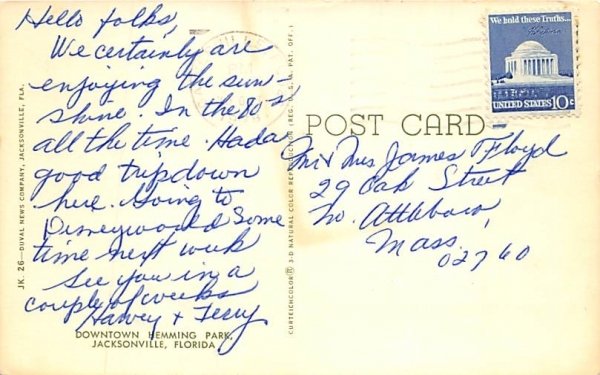 Hello folks,
We certainly are
enjoying the sun-
shine. In the 80's
all the time. Had a
good trip down
here. Going to
Disneyworld some
time next week
See you in a
couple of weeks
Harvey + Terry
DOWNTOWN HEMMING PARK,
JACKSONVILLE, FLORIDA
JK. 26—DUVAL NEWS COMPANY, JACKSONVILLE, FLA.
CURTEICHCOLOR ® 3-D NATURAL COLOR REPRODUCTION (REG. U.S.A. PAT. OFF.)
POST CARD
We hold these Truths...
UNITED STATES 10c
Mr + Mrs James Floyd
29 Oak Street
No. Attleboro,
Mass.
02760